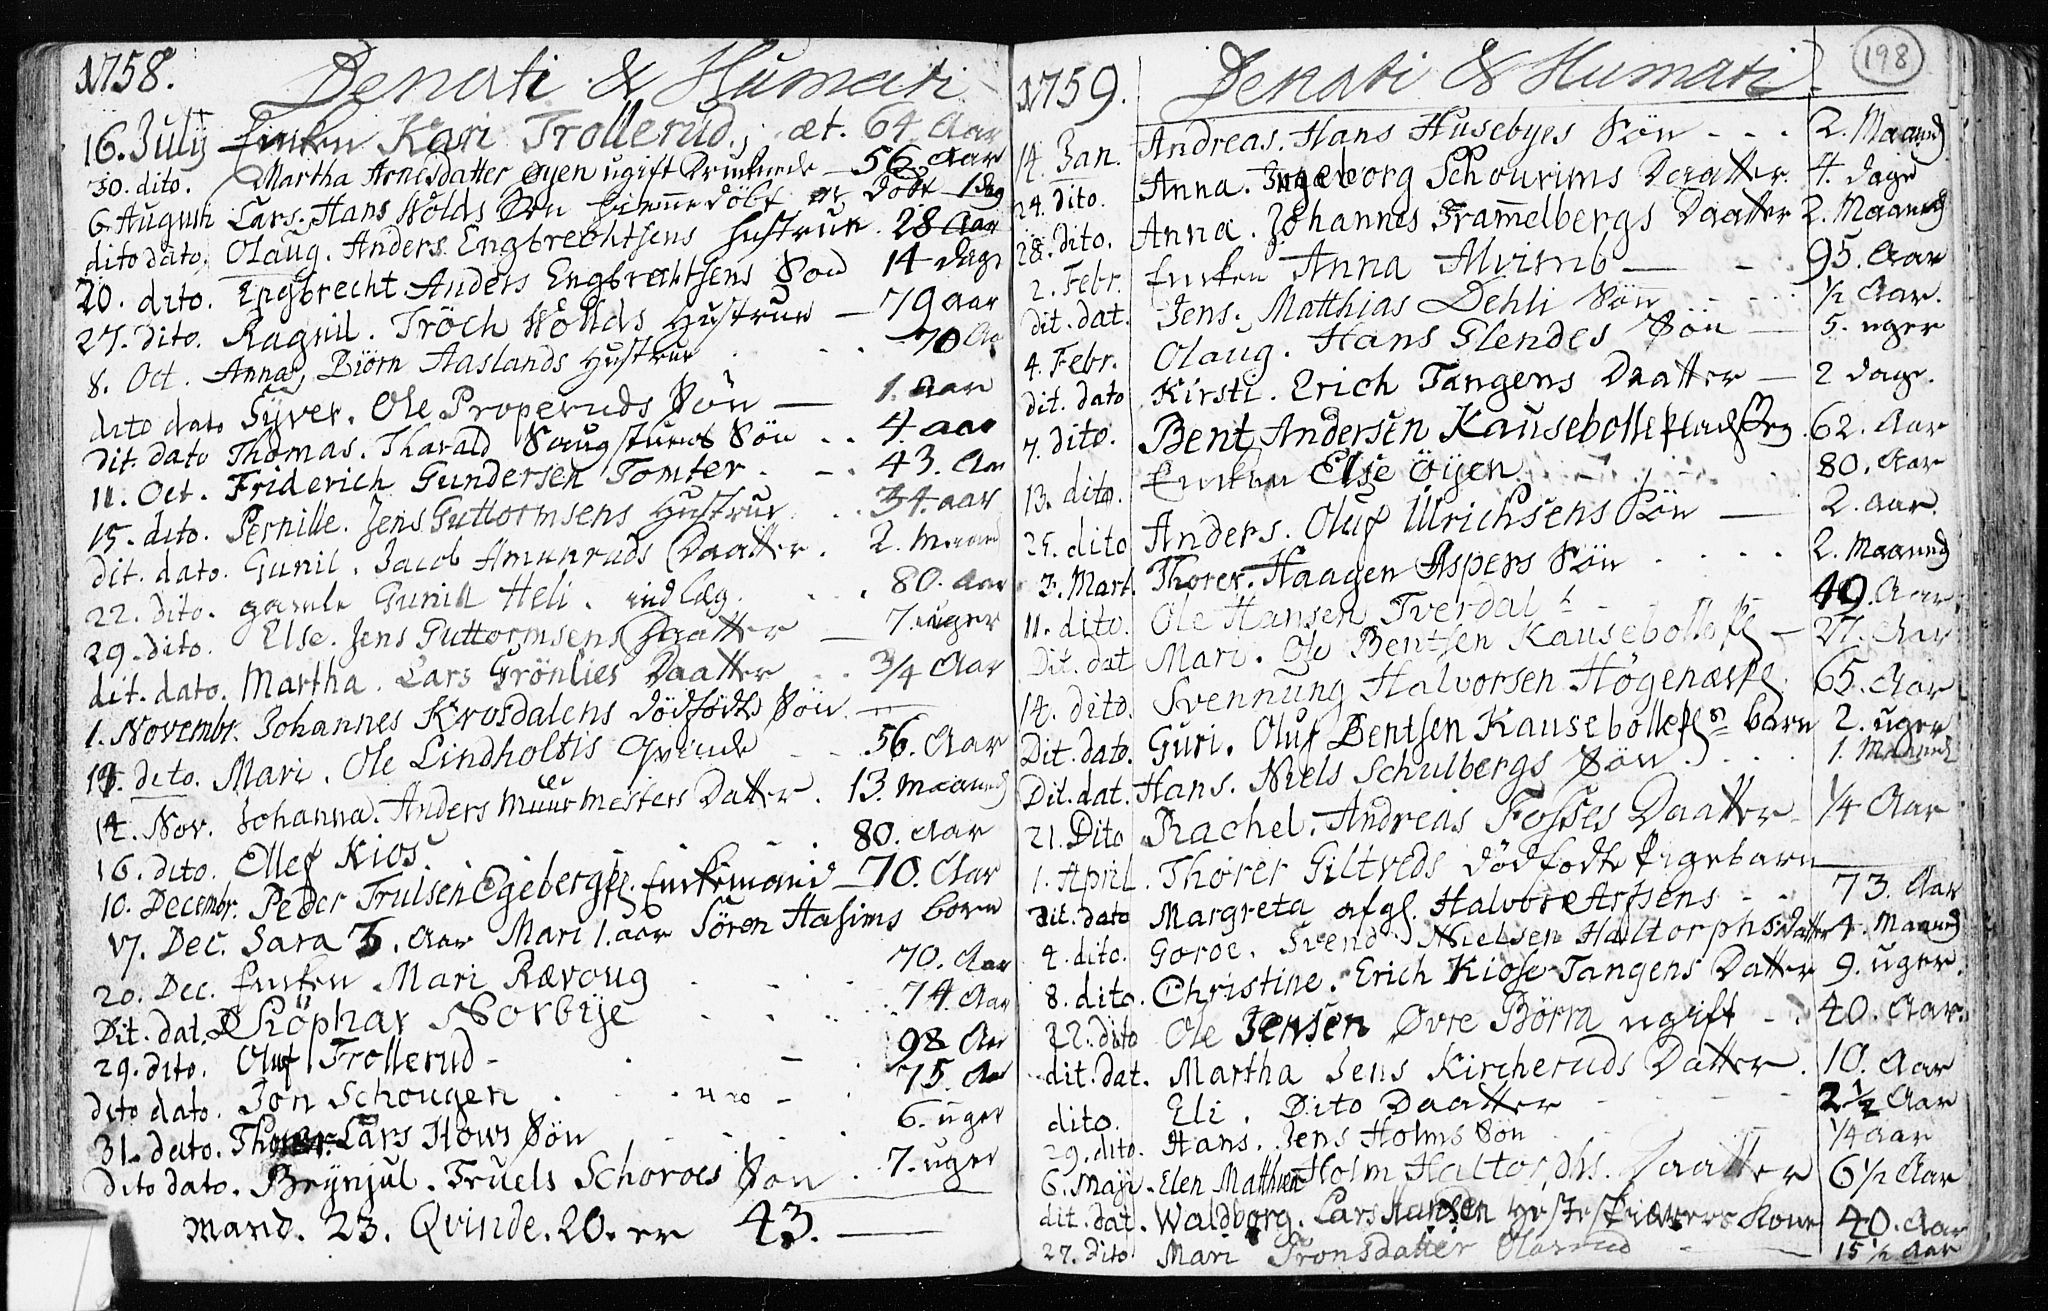 1758. Denati & Humati
16. Julij Enken Kari Trollerud, æt. 64 Aar
30. dito. Martha Arnesdatter Øyen ugift 56. Aar
6 Augusti Lars. Hans Wolds Søn hiemmedöbt og Döbt 1 dag
dito dato. Olaug. Anders Engbrechtsens Hustrue. 28 Aar
20. dito. Engbrecht Anders Engbrechtsens Søn 14 dage
27. dito. Ragnil. Tröch Wolds Hustrue 79 aar
8. Oct. Anna, Biörn Aaslands Hustrue 70 Aa
dito dato Syver. Ole Properuds Sön 1. Aar
Dit. dato Thomas. Tharald Saugstuens Sön 4. aar
11. Oct. Friderich Gundersen Tomter 43. Aar
15. dito. Pernille. Jens Guttormsens Hustrue 34. aar
dit. dato. Gunil. Jacob Amunruds Daatter. 2. Maand
22. dito. gamle Gunil Heli. indlæg. 80. Aar
29. dito. Else. Jens Guttormsens Daatter 7. uger
dit. dato. Martha. Lars Grönlies Daatter 3/4 Aar
1. Novembr. Johannes Krosdalens dödfödte Sön
dito. Mari. Ole Lindholtis Qvinde 56. Aar
14. Nov. Johanna. Anders Muurmesters Datter. 13. Maaned
16. dito. Ellef Kios. 80. Aar
10. Decembr. Peder Trulsen Egebergs Enkemand 70. Aar
17. Dec. Sara 3. Aar Mari 1. aar Sören Hasims børn
20. Dec. Enken Mari Rævoug 70. Aar
Dit. dat. Christophar Norbye 74. Aar
29. dito. Oluf Trollerud 98 Aar
dito dato. Jon Schougen 75. Aar
31. dato. Lars Hows Sön 6. uger
dito dato. Brynjul. Truels Schoroes Søn 7. uger
Mand. 23. Qvinde. 20. er 43.
198
1759. Denati & Humati
14. Jan. Andreas. Hans Husebyes Sön 2. Maaned
24. dito. Anna. Ingeborg Schourims Daatter. 4. dage
28. dito. Anna. Johannes Trammelbergs Daatter 2. Maaned
2. Febr. Enken Anna Alvimb 95. Aar
Dit. dat. Jens. Matthias Dehli Sön 1/2 Aar.
4. Febr. Olaug. Hans Glendes Sön 5. uger
dit. dato Kirsti. Erich Tangens Daatter 2 dage.
7. dito. Bent Andersen Kausebolle 62. Aar
13. dito. Enken Else Öyen 80. Aar
25. dito Anders. Oluf Ulrichsens Sön 2. aar.
3. Mart. Thorer. Haagen Aspers Sön 2. Maaned
11. dito. Ole Hansen Tverdal 49. Aar
Dit. dat Mari. Ole Bentsen Kausebolle 27. Aar
14. dito. Svennung Halvorsen 65. Aar
Dit. dato. Guri. Oluf Bentsen Kausebolle barn 2. uger
Dit. dat. Hans. Niels Schulbergs Sön. 1. Maaned
21. Dito Rachel. Andreas Fosses Daatter 1/4 Aar
1. April. Thorer Giltveds dödfodte Pigebarn
dit. dato Margreta afgl. Halvor 73. Aar
4. dito. Goroe. Svend Nielsen Haltorph Datter 4. Maaned
8. dito. Christine. Erich Kiose Tangens Datter 9. uger.
22. dito Ole Jensen Øvre Börra ugift 40. Aar.
dit. dat. Martha Jens Kircheruds Datter. 10. Aar
dito. Eli. Dito Daatter 2 1/2 Aar
29. dito. Hans. Jens Holms Sön 1/4 aar
6. Maji. Elen Matthien Holm Haltorphs. Daatter 6 1/2 Aar
dit. dat. Waldborg. Lars Kone 40. Aar
27. dito Mari Tronsdatter Olarud 15 1/2 Aar